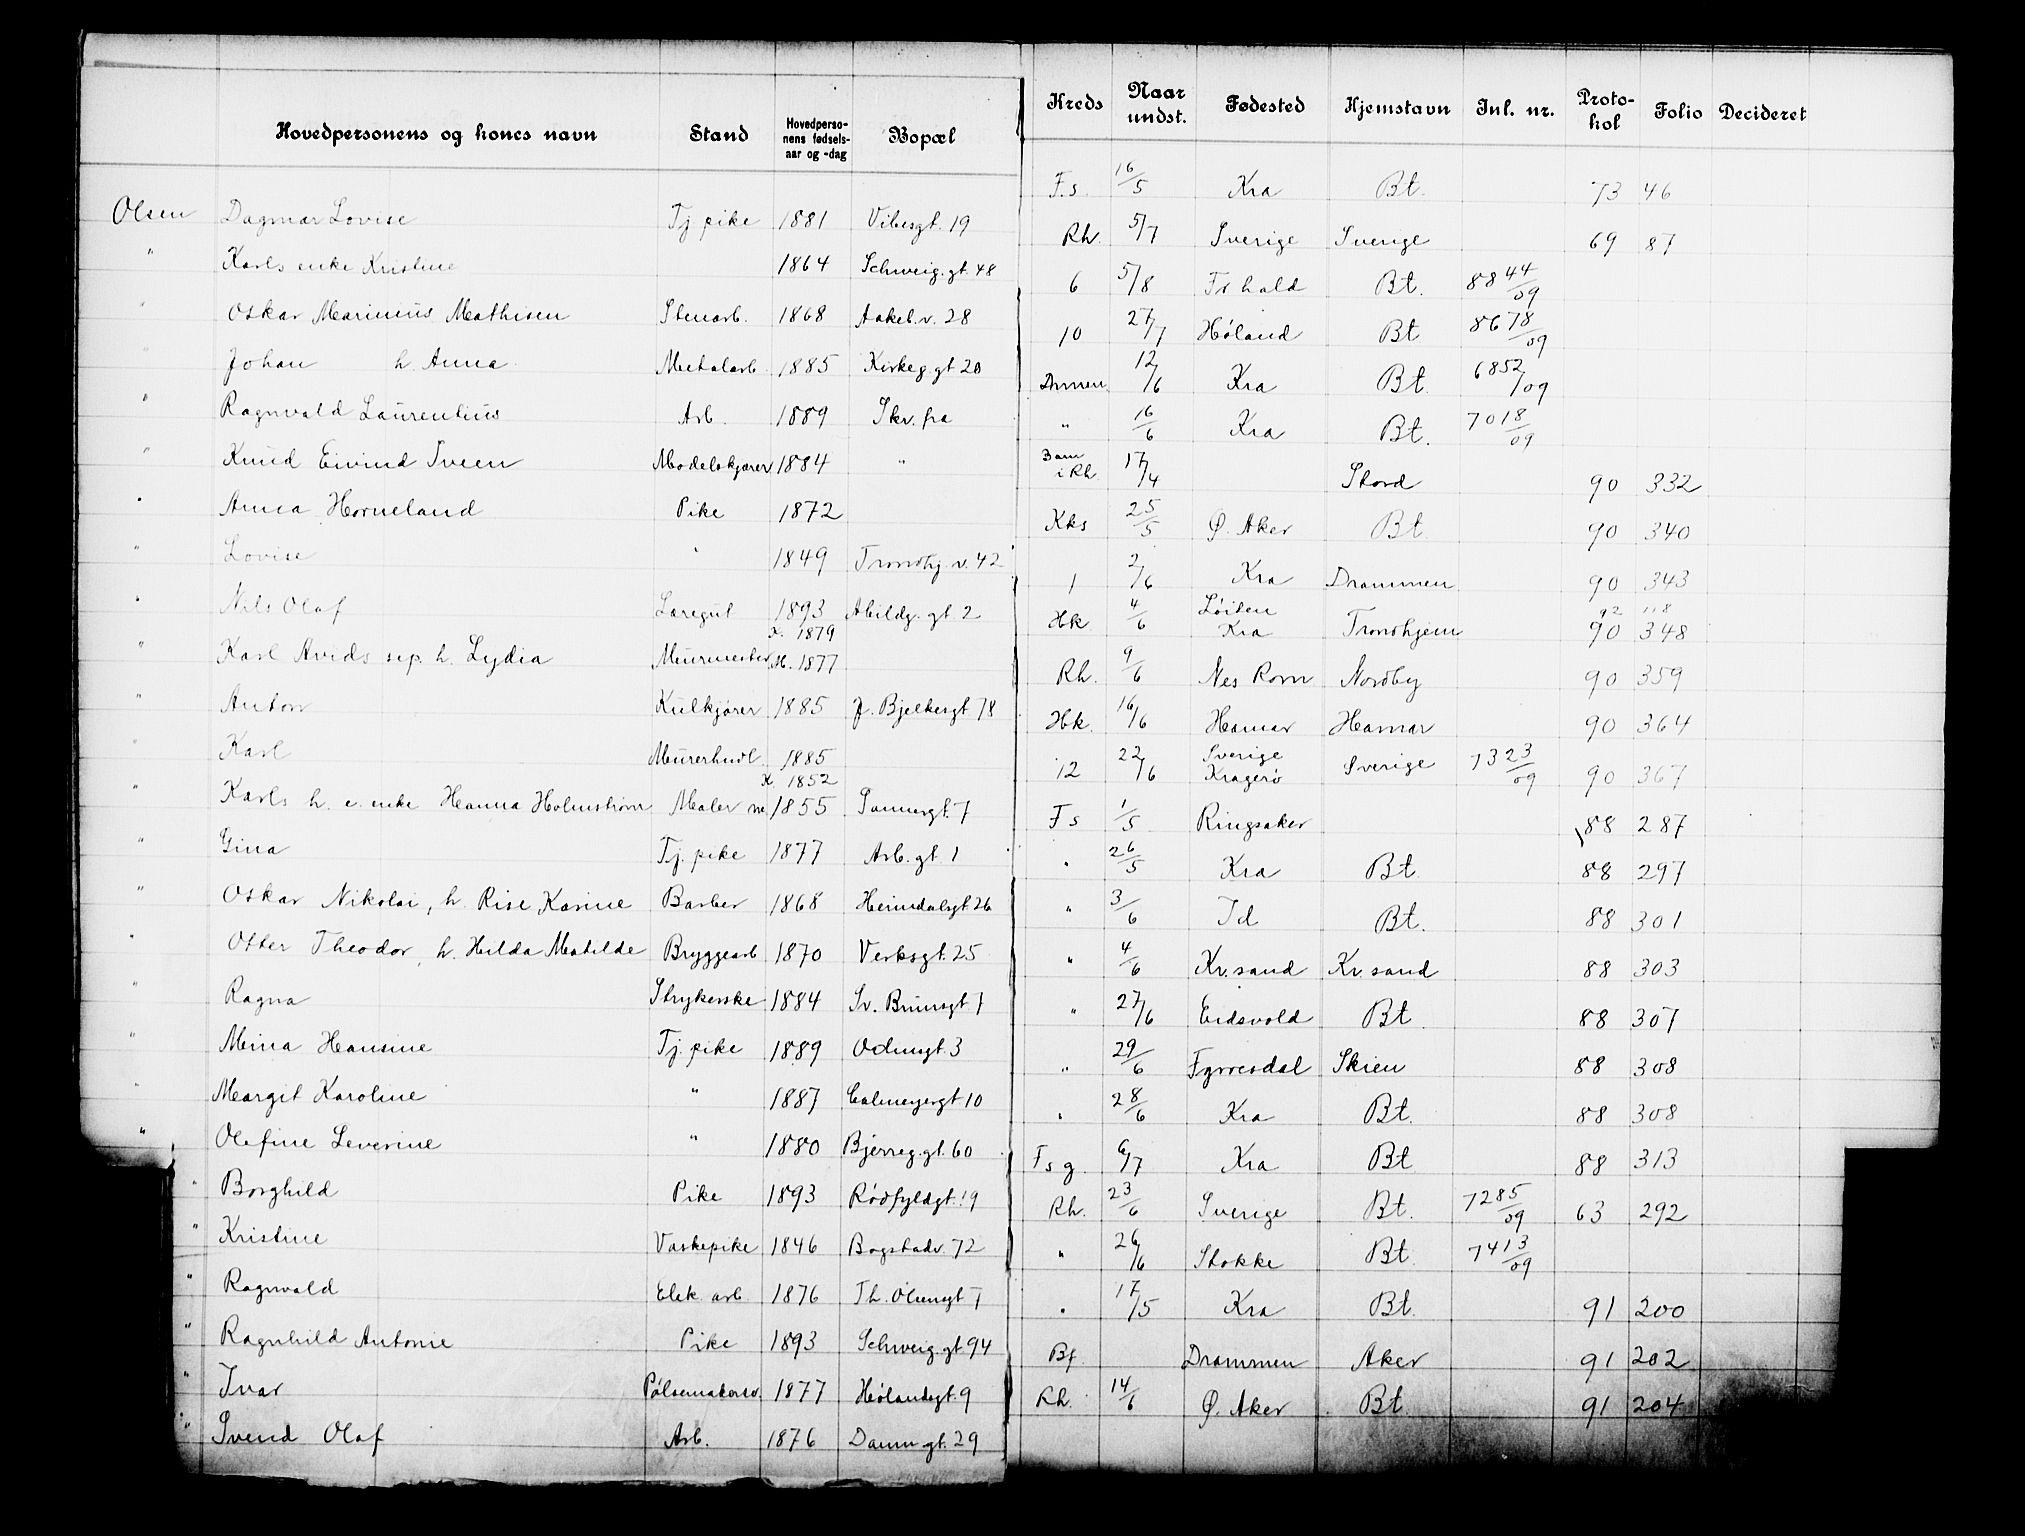 Hovedpersonens og kones navn Stand Hovedperso-nens fødsels-aar og -dag Bopæl Kreds Naar undst. Fødested Hjemstavn Inl. nr. Proto-kol Folio Decideret
Olsen Dagmar Lovise Tj pike 1881 Vibesgt. 19 F.s. 16/5 Kra Bt. 73 46
" Karls enke Kristine 1864 Schweig. gt. 48 Rh. 5/7 Sverige Sverige 69 87
" Oskar Marinius Mathisen Stenarb. 1868 Aakeb. v. 28 6 5/8 Fr hald Bt. 8844/09
" Johan h. Anna Metalarb. 1885 Kirkeg gt 20 10 27/7 Høland Bt 8678/09
" Ragnvald Laurentius Arb. 1889 Skv. fra Dmmen 12/6 Kra Bt. 6852/09
" Knud Eivind Tveen Modelskjærer 1884 " " 16/6 Kra Bt. 7018/09
" Anna Horneland Pike 1872 Barn i Rh 17/4 Stord 90 332
" Lovise " 1849 Trondhj. v. 42 Kks 25/5 Ø. Aker Bt. 90 340
" Nils Olaf Læregut 1893 Abildg. gt 2 1 2/6 Kra Drammen 90 343
" Karl Avids sep. h. Lydia Murmester K. 1879 M. 1877 Hk 4/6 Løiten Kra Trondhjem 92 118 90 348
" Anton Kulkjører 1885 J. Bjelkesgt 78 Rh. 9/6 Nes Rom Nordby 90 359
" Karl Murerhndl. 1885 Hk. 16/6 Hamar Hamar 90 364
" Karls h. e. enke Hanna Holmstrøm Maler m. K. 1852 1855 Sannergt. 7 12 22/6 Sverige Kragerø Sverige 7323/09 90 367
" Gina Tj. pike 1877 Arb. gt. 1 Fs 1/5 Ringsaker 88 287
" Oskar Nikolai, h. Rise Karine Barber 1868 Heimdalsgt 26 " 26/5 Kra Bt 88 297
" Otter Theodor, h. Hilda Matilde Bryggearb 1870 Verksgt. 25 " 3/6 Id Bt. 88 301
" Ragna Strykerske 1884 Sv. Brunsgt 7 " 4/6 Kr. sand Kr. sand 88 303
" Mina Hansine Tj. pike 1889 Odinsgt. 3 " 27/6 Eidsvold Bt 88 307
" Margit Karoline " 1887 Calmeyergt 10 " 29/6 Fyrresdal Skien 88 308
" Olefine Severine " 1880 Bjerreg. gt. 60 " 28/6 Kra Bt. 88 308
" Borghild Pike 1893 Rødfyldgt. 19 Fs g. 6/7 Kra Bt 88 313
" Kristine Vaskepike 1846 Bogstadv. 72 Rh. 23/6 Sverige Bt. 7285/09 63 292
" Ragnvald Elek. arb 1876 Th. Olsensgt 1 " 26/6 Stokke Bt 7413/09
" Ragnhild Antonie Pike 1893 Schweig. gt 94 " 17/5 Kra Bt. 91 200
" Ivar Pølsemakersv. 1877 Hølandsgt. 9 Bf. Drammen Aker 91 202
" Svend Olaf Arb. 1876 Damm gt. 29 Rh. 14/6 Ø. Aker Bt. 91 204